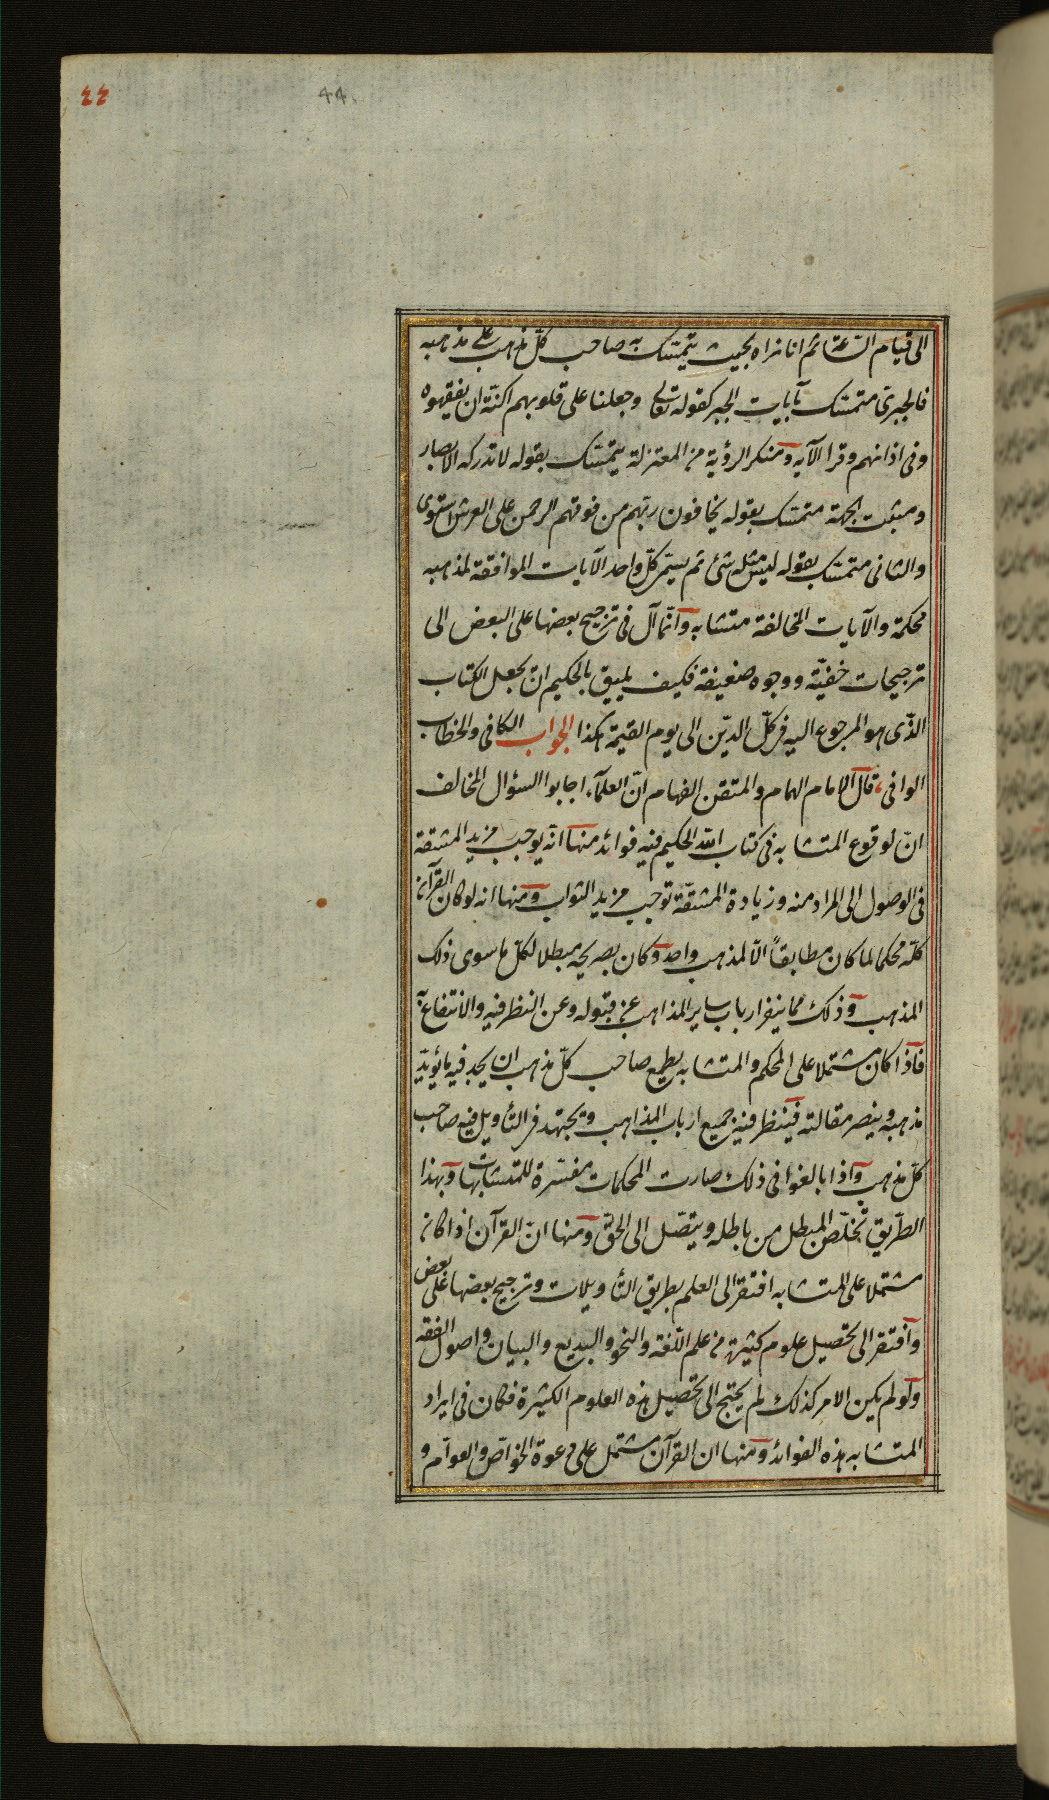 ٤٤
44.
الى قيام الساعة ثم انا نراه بحيث يتمسك به صاحب كل مذهب على مذهبه
فالجبرى متمسك بآيات الجبر كقوله تعالى وجعلنا على قلوبهم اكنة ان يفقهوه
وفى اذانهم وقرا الآية ومنكر الرؤية من المعتزلة يتمسك بقوله لا تدركه الابصار
ومثبت الجهة متمسك بقوله يخافون ربهم من فوقهم الرحمن على العرش استوى
والثانى متمسك بقوله ليس كمثله شئ ثم يسمى كل واحد الآيات الموافقة لمذهبه
محكمة والآيات المخالفة متشابه وانما آل فى ترجيح بعضها على البعض الى
ترجيحات خفيّة ووجوه ضعيفة فكيف يليق بالحكيم ان يجعل الكتاب
الذى هو المرجوع اليه فى كلّ الدين الى يوم القيمة هكذا الجواب الكافى والخطاب
الوافى قال الامام الهمام والمتقن الفهام انّ العلماء اجابوا السؤال المخالف
انّ لوقوع المتشابه فى كتاب الله الحكيم فيه فوائد منها انّه يوجب مزيد المشقة
فى الوصول الى المراد منه وزيادة المشقّة توجب مزيد الثواب ومنها انه لو كان القرآن
كلّه محكما لما كان مطابقاً الّا لمذهب واحد وكان بصريحه مبطلا لكلّ ما سوى ذلك
المذهب وذلك مما ينفر ارباب ساير المذاهب عن قبوله وعن النظر فيه والانتفاع به
فاذا كان مشتملا على المحكم والمتشابه يطمع صاحب كلّ مذهب ان يجد فيه ما يؤيّد
مذهبه وينصر مقالته فينظر فيه جميع ارباب المذاهب ويجتهد فى التأويل فيه صاحب
كلّ مذهب واذا بالغوا فى ذلك صارت المحكمات مفسّرة للمتشابهات وبهذا
الطريق يتخلّص المبطل من باطله ويتصل الى الحقّ ومنها انّ القرآن اذا كان
مشتملا على المتشابه افتقر الى العلم بطريق التأويلات وترجيح بعضها على بعض
وافتقر الى تحصيل علوم كثيرة من علم اللّغة والنحو والبديع والبيان واصول الفقه
ولو لم يكن الامر كذلك لم يحتج الى تحصيل هذه العلوم الكثيرة فكان فى ايراد
المتشابه هذه الفوائد ومنها ان القرآن مشتمل على دعوة الخواصّ والعوامّ و